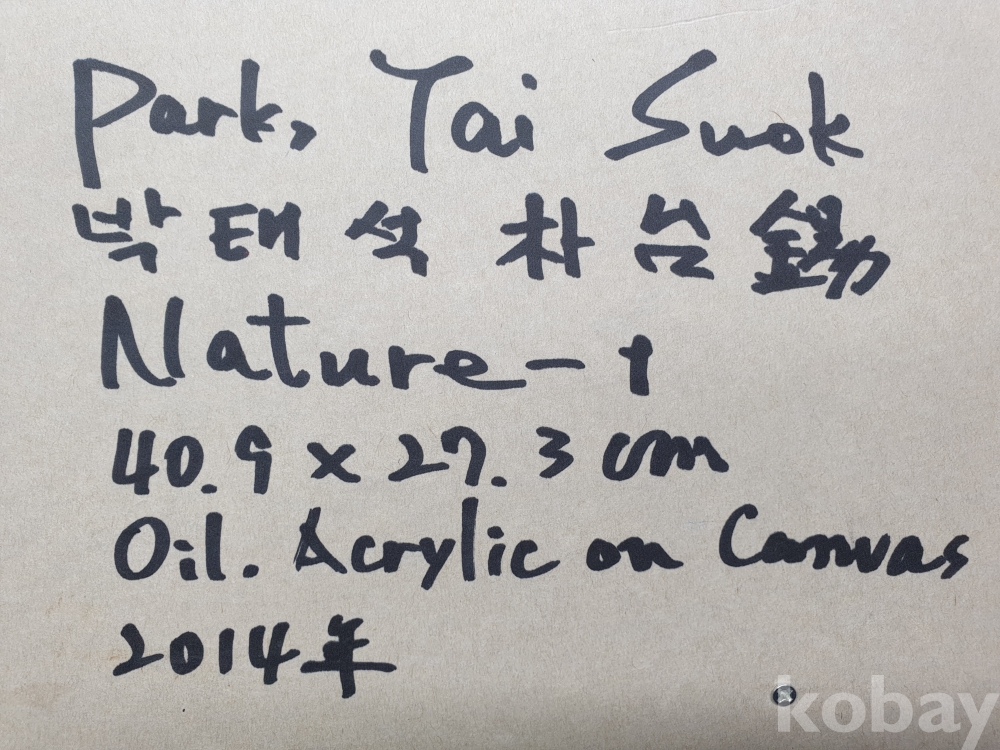 Park, Tai Suok
박태석 朴台錫
Nature-1
40.9 x 27.3 cm
Oil. Acrylic on Canvas
2014年
kobay